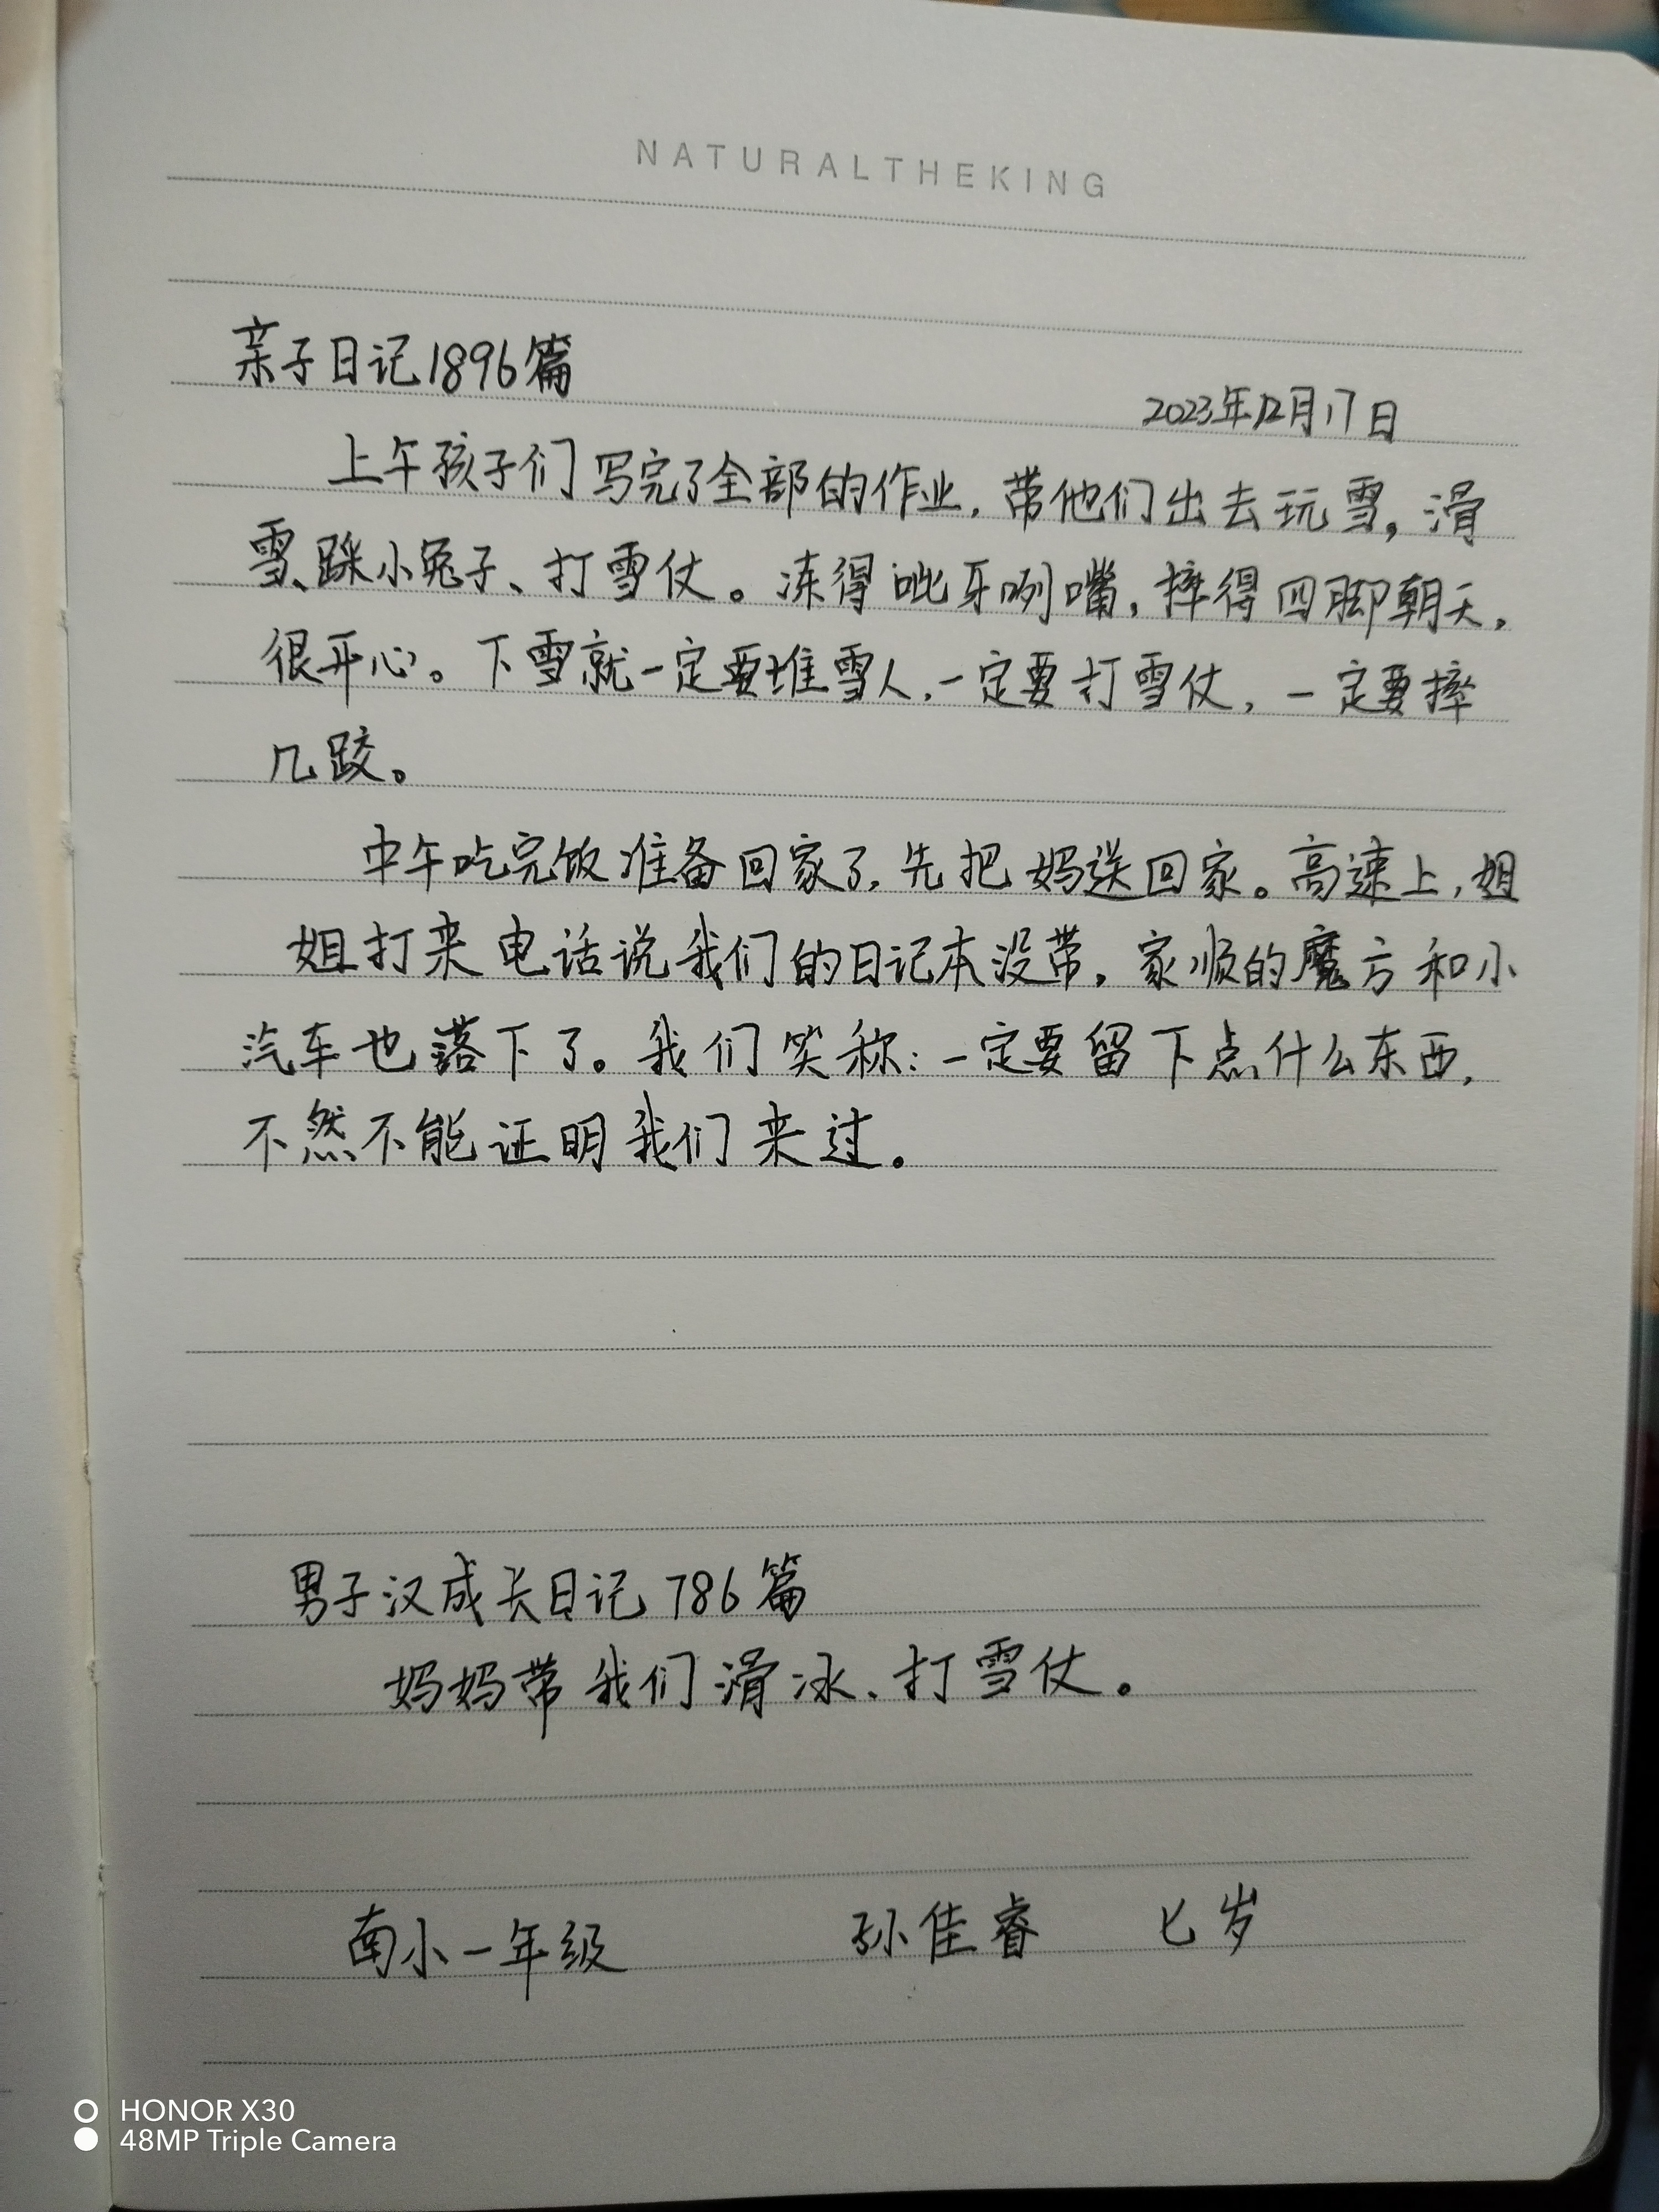 NATURALTHEKING
亲子日记1896篇
2023年12月17日
上午孩子们写完了全部的作业，带他们出去玩雪，滑
雪、踩小兔子、打雪仗。冻得呲牙咧嘴，摔得四脚朝天，
很开心。下雪就一定要堆雪人，一定要打雪仗，一定要摔
几跤。
中午吃完饭准备回家了，先把妈送回家。高速上，姐
姐打来电话说我们的日记本没带，家顺的魔方和小
汽车也落下了。我们笑称：一定要留下点什么东西，
不然不能证明我们来过。
男子汉成长日记786篇
妈妈带我们滑冰、打雪仗。
南小一年级 孙佳睿 七岁
HONOR X30
48MP Triple Camera